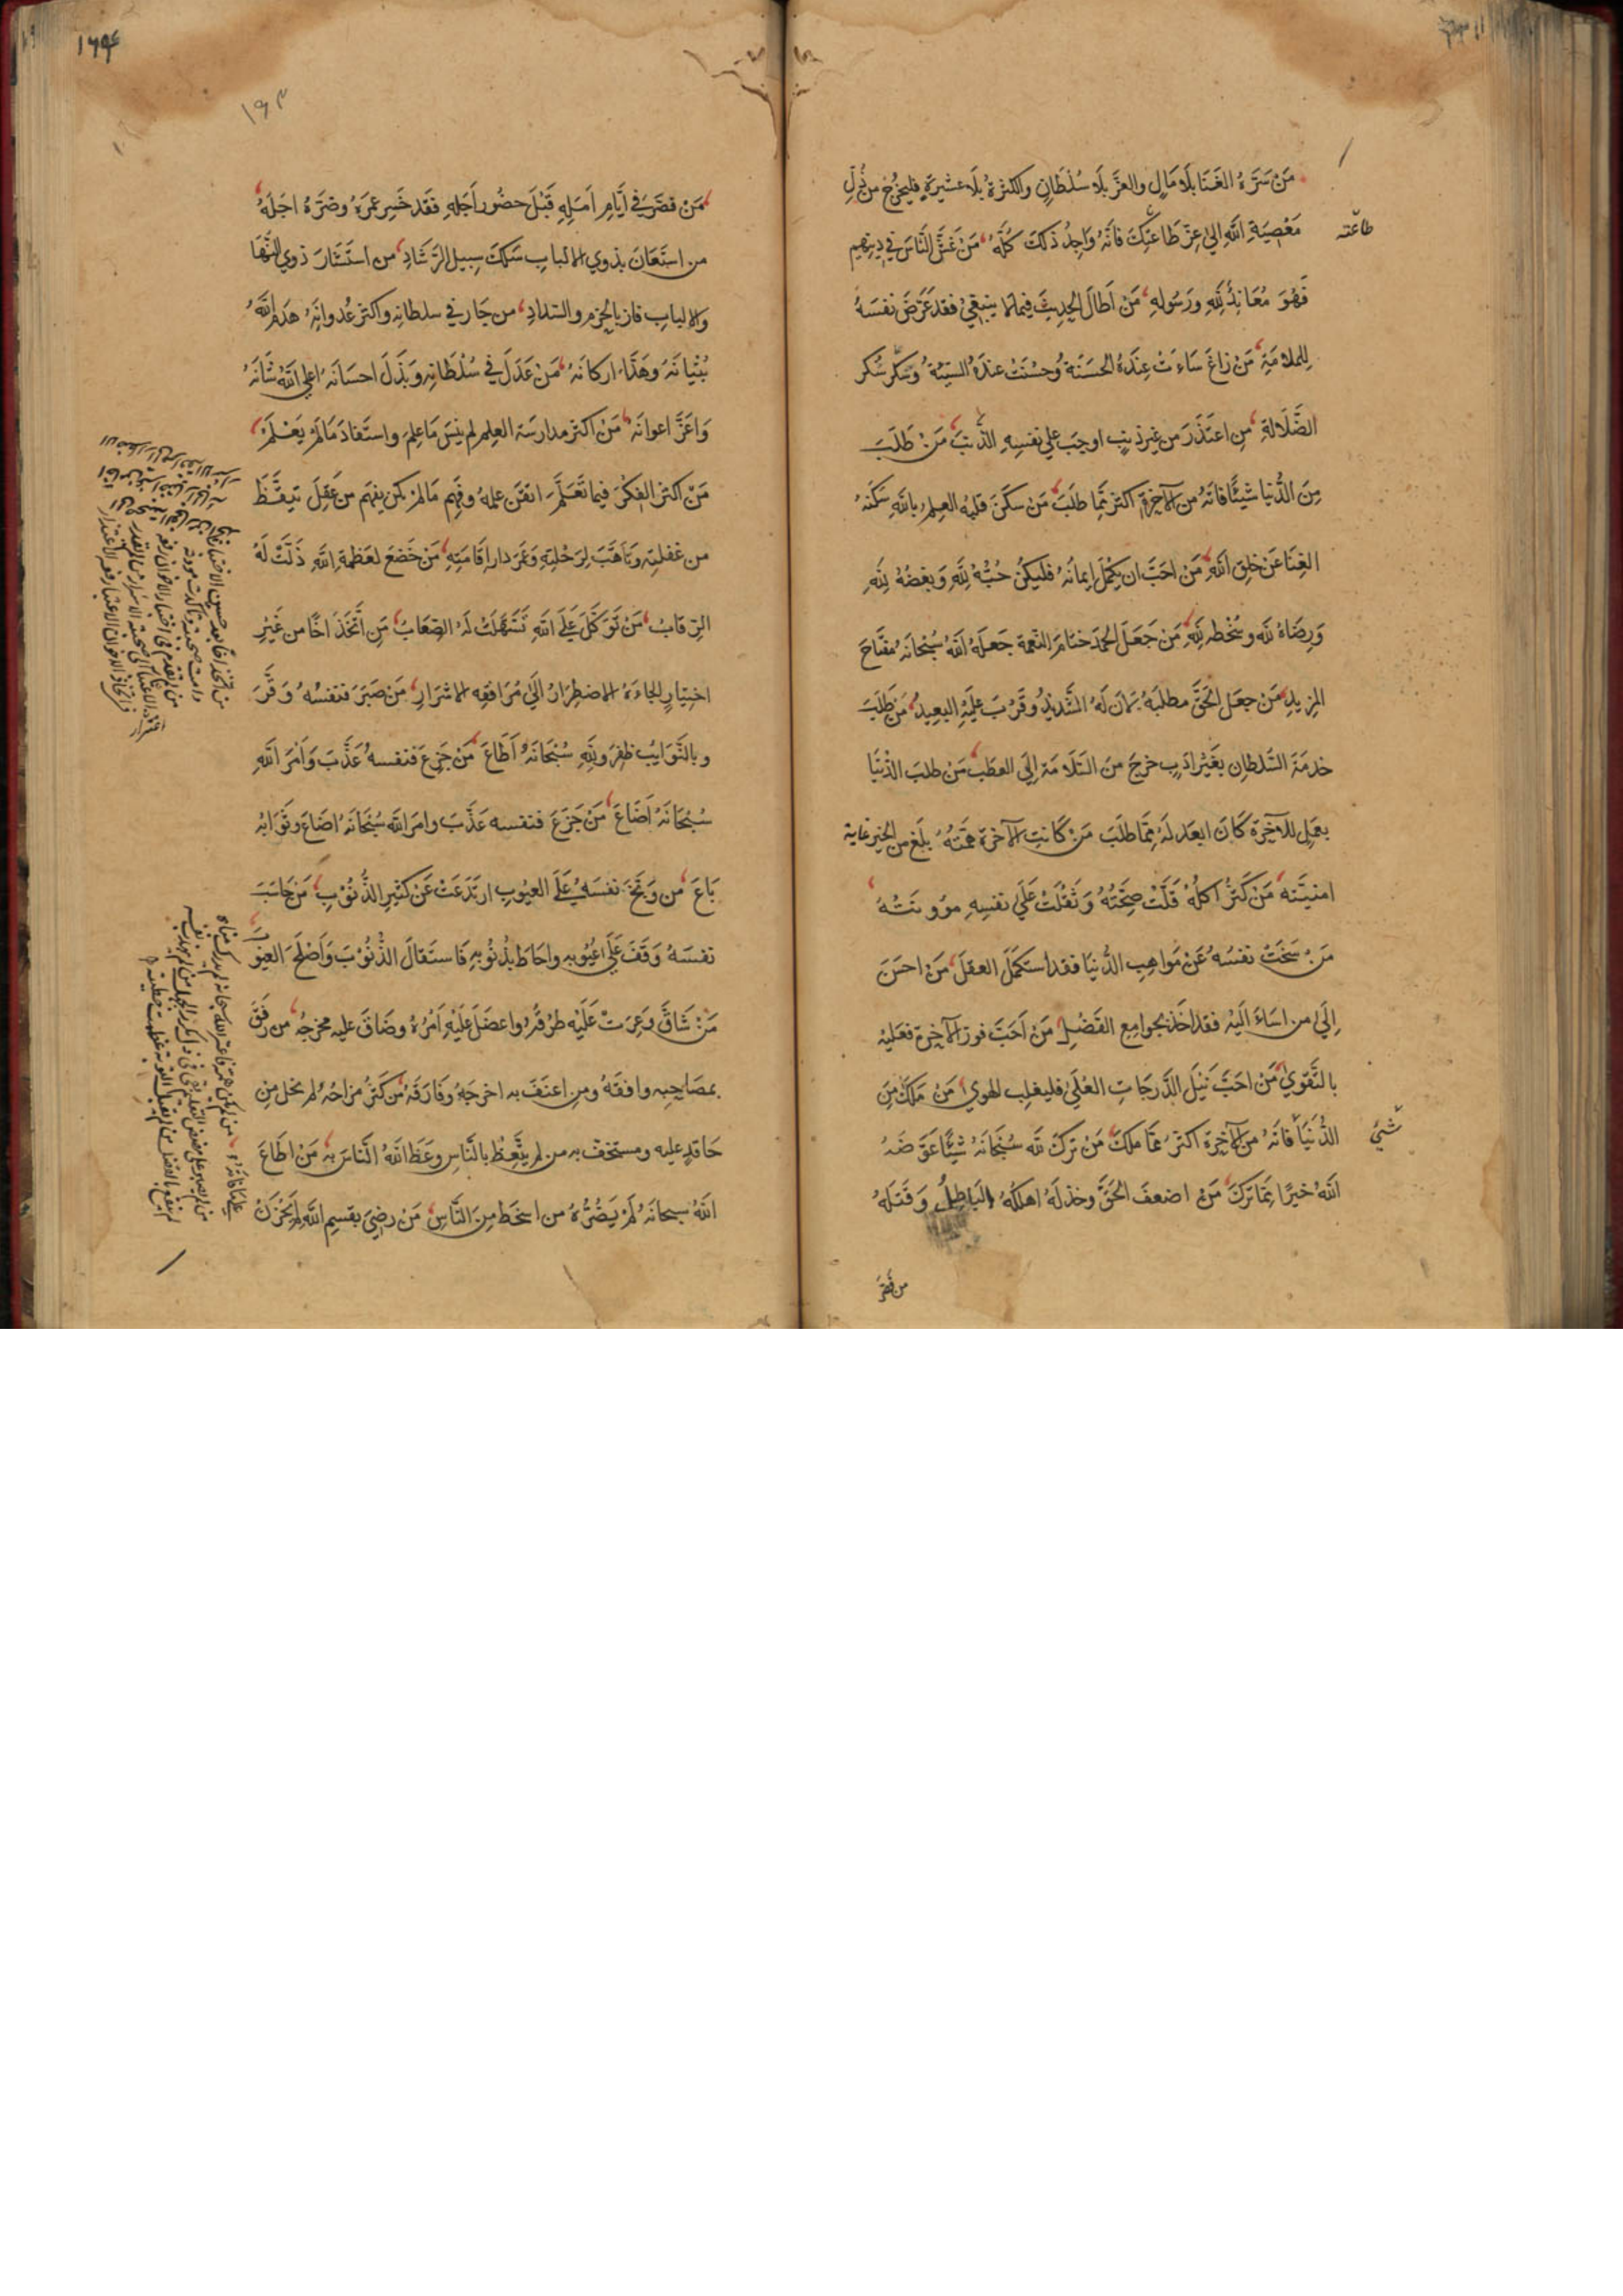 مَنْ سَرَّهُ الغَنَا بلَا مَالٍ والعزّ بلَا سُلْطَانٍ والكثرةُ بلَا عشيرةٍ فليخرُج من ذُلِّ
مَعْصِيَةِ اللهِ الي عِزّ طَاعتِكَ فانّهُ وَاجِدُ ذلكَ كُلَّهُ مَنْ غشَّ النّاسَ في دِينِهِم
طاعته
فَهُوَ مُعَانِدٌ لِلّهِ ورَسُولِهِ مَنْ اَطَالَ الحِديثَ فيما لَا ينبغي فقد عَرَّضَ نفسَهُ
لِلملامَةِ مَنْ زاغَ سَاءَتْ عِندَهُ الحسَنَةُ وحسُنَتْ عندَهُ السيّئةُ وسَكر سُكر
الضَّلَالةِ مِن اعتَذَرَ من غيرِ ذنبٍ اوجبَ علي نفسِهِ الذّنبَ مَنْ طَلَبَ
مِنَ الدُّنيا شيئًا فاتَهُ من الآخرةِ اكثرُ ممّا طلَبَ مَنْ سكَنَ قلبهُ العِلمُ باللهِ سَكنَهُ
الغِنَا عَن خلقِ اللهِ مَن احَبَّ ان يَكملَ اِيمانُهُ فليكُن حُبُّهُ لِلّهِ وبغضُهُ لِلّهِ
وَرِضَاهُ لله وسُخطه لِلّهِ مَنْ جَعَلَ الحمدَ ختامَ النّعمة جعلَهُ اللهُ سُبْحانَهُ مفتَاحَ
المزيدِ مَنْ جعَلَ الحَقَّ مطلَبَهُ لَانَ لَهُ الشَّدِيْدُ وقَرُبَ عليْهِ البعِيدُ مَن طَلَبَ
خدمَةَ السّلطانِ بغَيْرِ ادَبٍ خرجَ منَ السَّلَامَة اِلَى العطَبِ مَنْ طلبَ الدّنيَا
بعمَلِ للآخِرَة كَانَ ابعَد لهُ ممّا طلَبَ مَنْ كَانتِ الآخرة همّتهُ بلَغ من الخير غاية
امنيَّتهِ مَنْ كَثُرَ اكلُهُ قَلَّتْ صِحَّتُهُ وَثقُلَتْ عَلَي نفسِهِ موُونتُهُ
مَنْ سَخَتْ نفسُهُ عَنْ مَواهِبِ الدُّنيَا فقد استكمَلَ العقلَ مَنْ احسَنَ
اِلَي من اسَاءَ اليْهِ فقد اخَذ بجوامِعِ الفَضْلِ مَنْ اَحَبَّ فوزَ الآخِرَة فعَليْهِ
بالتَّقوي مَن احَبَّ نَيْلَ الدَّرجَاتِ العُلَي فليغلِبِ الهوي مَن مَلكَ مِنَ
الدُّنيَا فاتَهُ من الآخِرَة اكثرُ ممّا ملكَ مَنْ تركَ لله سُبْحانَهُ شيْئًا عَوَّضَهُ
شَيئ
اللهُ خيرًا ممّا تركَ مَنْ اضعفَ الحَقَّ وخذلَهُ اهلكَهُ البَاطِلُ وَقتَلهُ
من قصّر
١٦٤
١٩٣
مَنْ قصَّرَ في اَيَّامِ اَمَلِهِ قَبْلَ حضُورِ اَجَلِهِ فَقَد خَسِرَ عمرَهُ وضرَّهُ اجَلهُ
من استَعَانَ بذوي الالبابِ سَلكَ سبِيل الرَّشَادِ من استَشارَ ذوي النُّهَا
والالبابِ فازَ بالحَزم والسّدادِ من جَارَ في سلطانِهِ واكثرَ عُدوانَهُ هدَمَ اللهُ
بُنْيَانَهُ وهَدَّ اركانَهُ مَنْ عَدَلَ فِي سُلْطانِهِ وبَذَلَ احسَانَهُ اعلي اللهُ شَانَهُ
وَاعَزَّ اعوانَهُ مَنْ اكثرَ مدارسَة العِلم لم ينسَ مَا علِمَ واستَفادَ مَا لَمْ يَعْلَمْ
مَنْ اكثرَ الفِكرَ فيما تَعَلَّمَ اتقنَ علمهُ وفَهِمَ مَا لمْ يكن يفهَم من عَقِلَ تيقَّظَ
من غفلتِهِ وتاهَّبَ لِرَحْلتِهِ وعَمَرَ دار اِقَامَتِهِ مَنْ خَضعَ لعَظمةِ اللهِ ذَلَّتْ لَهُ
الرِّقابُ مَنْ تَوَكَّلَ عَلَي اللهِ تَسَهَّلَتْ لَهُ الصِّعَابُ مَن اتَّخَذَ اخًا من غَيْرِ
اختِيارٍ الجاءَهُ الاضطِرَارُ الَي مُرَافقةِ الاشرَارِ مَنْ صَبَرَ فنفسُهُ وَقَّرَ
وبالثّوَابِ ظفِرَ ولِلّهِ سُبْحَانَهُ اَطَاعَ مَنْ جَزِعَ فنفسهُ عَذَّبَ وَاَمرَ اللهِ
سُبْحَانَهُ اَضَاعَ مَنْ جَزِعَ فنفسه عَذَّبَ وامرَ الله سُبْحَانَهُ اضَاعَ وثوَابهُ
بَاعَ من وَبَّخَ نفسَهُ عَلَي العيُوبِ ارتدَعَتْ عَنْ كثيرِ الذُّنُوبِ مَن حَاسَبَ
نفسَهُ وَقفَ عَلَي عُيُوبِهِ واحاطَ بذُنُوبِهِ فاستَقالَ الذُّنُوْبَ وَاَصْلَحَ العيُو
بَ
مَنْ شَاقَّ وعِرَتْ عَلَيْهِ طرُقهُ واعضَلَ عَلَيْهِ اَمْرُهُ وضَاقَ عليه مخرجُهُ من رفَقَ
بمصَاحِبِهِ وافقهُ ومن اعنَفَ به اخرجَهُ وفَارَقهُ مَن كَثُرَ مزاحُهُ لم يخل من
حَاقدٍ عليه ومستخفٍّ به من لم يتَّعِظْ بالنَّاسِ وعَظَ اللهُ النّاسَ بهِ مَنْ اَطَاعَ
اللهَ سبحانَهُ لَمْ يَضُرّهُ من اسخَطَ مِنَ النَّاسِ مَنْ رضِيَ بقسم اللهِ لم يَحْزَنْ